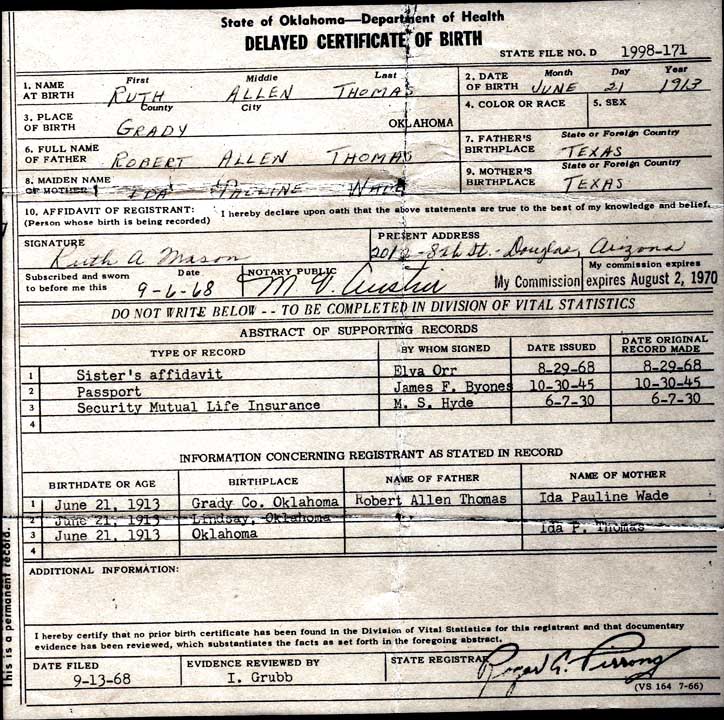 State of Oklahoma—Department of Health
DELAYED CERTIFICATE OF BIRTH
STATE FILE NO. D 1998-171
1. NAME AT BIRTH First Middle Last
RUTH ALLEN THOMAS
2. DATE OF BIRTH Month Day Year
JUNE 21 1913
3. PLACE OF BIRTH County City
GRADY OKLAHOMA
4. COLOR OR RACE 5. SEX
6. FULL NAME OF FATHER
ROBERT ALLEN THOMAS
7. FATHER'S BIRTHPLACE State or Foreign Country
TEXAS
8. MAIDEN NAME OF MOTHER
IDA PAULINE WADE
9. MOTHER'S BIRTHPLACE State or Foreign Country
TEXAS
10. AFFIDAVIT OF REGISTRANT: I hereby declare upon oath that the above statements are true to the best of my knowledge and belief.
(Person whose birth is being recorded)
SIGNATURE
Ruth A Mason
PRESENT ADDRESS
8th St. - Douglas, Arizona
Subscribed and sworn to before me this
Date
9-6-68
NOTARY PUBLIC
M V Austin
My Commission
My commission expires
expires August 2, 1970
DO NOT WRITE BELOW -- TO BE COMPLETED IN DIVISION OF VITAL STATISTICS
ABSTRACT OF SUPPORTING RECORDS
TYPE OF RECORD BY WHOM SIGNED DATE ISSUED DATE ORIGINAL RECORD MADE
1 Sister's affidavit Elva Orr 8-29-68 8-29-68
2 Passport James F. Byones 10-30-45 10-30-45
3 Security Mutual Life Insurance M. S. Hyde 6-7-30 6-7-30
4
INFORMATION CONCERNING REGISTRANT AS STATED IN RECORD
BIRTHDATE OR AGE BIRTHPLACE NAME OF FATHER NAME OF MOTHER
1 June 21, 1913 Grady Co. Oklahoma Robert Allen Thomas Ida Pauline Wade
2 June 21, 1913 Lindsay, Oklahoma
3 June 21, 1913 Oklahoma Ida P. Thomas
4
ADDITIONAL INFORMATION:
I hereby certify that no prior birth certificate has been found in the Division of Vital Statistics for this registrant and that documentary
evidence has been reviewed, which substantiates the facts as set forth in the foregoing abstract.
DATE FILED
9-13-68
EVIDENCE REVIEWED BY
I. Grubb
STATE REGISTRAR
Roger C. Pirrong
(VS 164 7-66)
This is a permanent record.